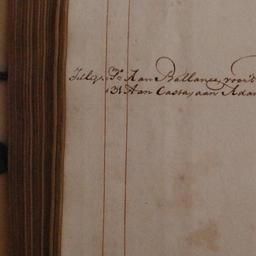 July. Aan Ballance, voor't
31. Aan Cassa, aan Adam